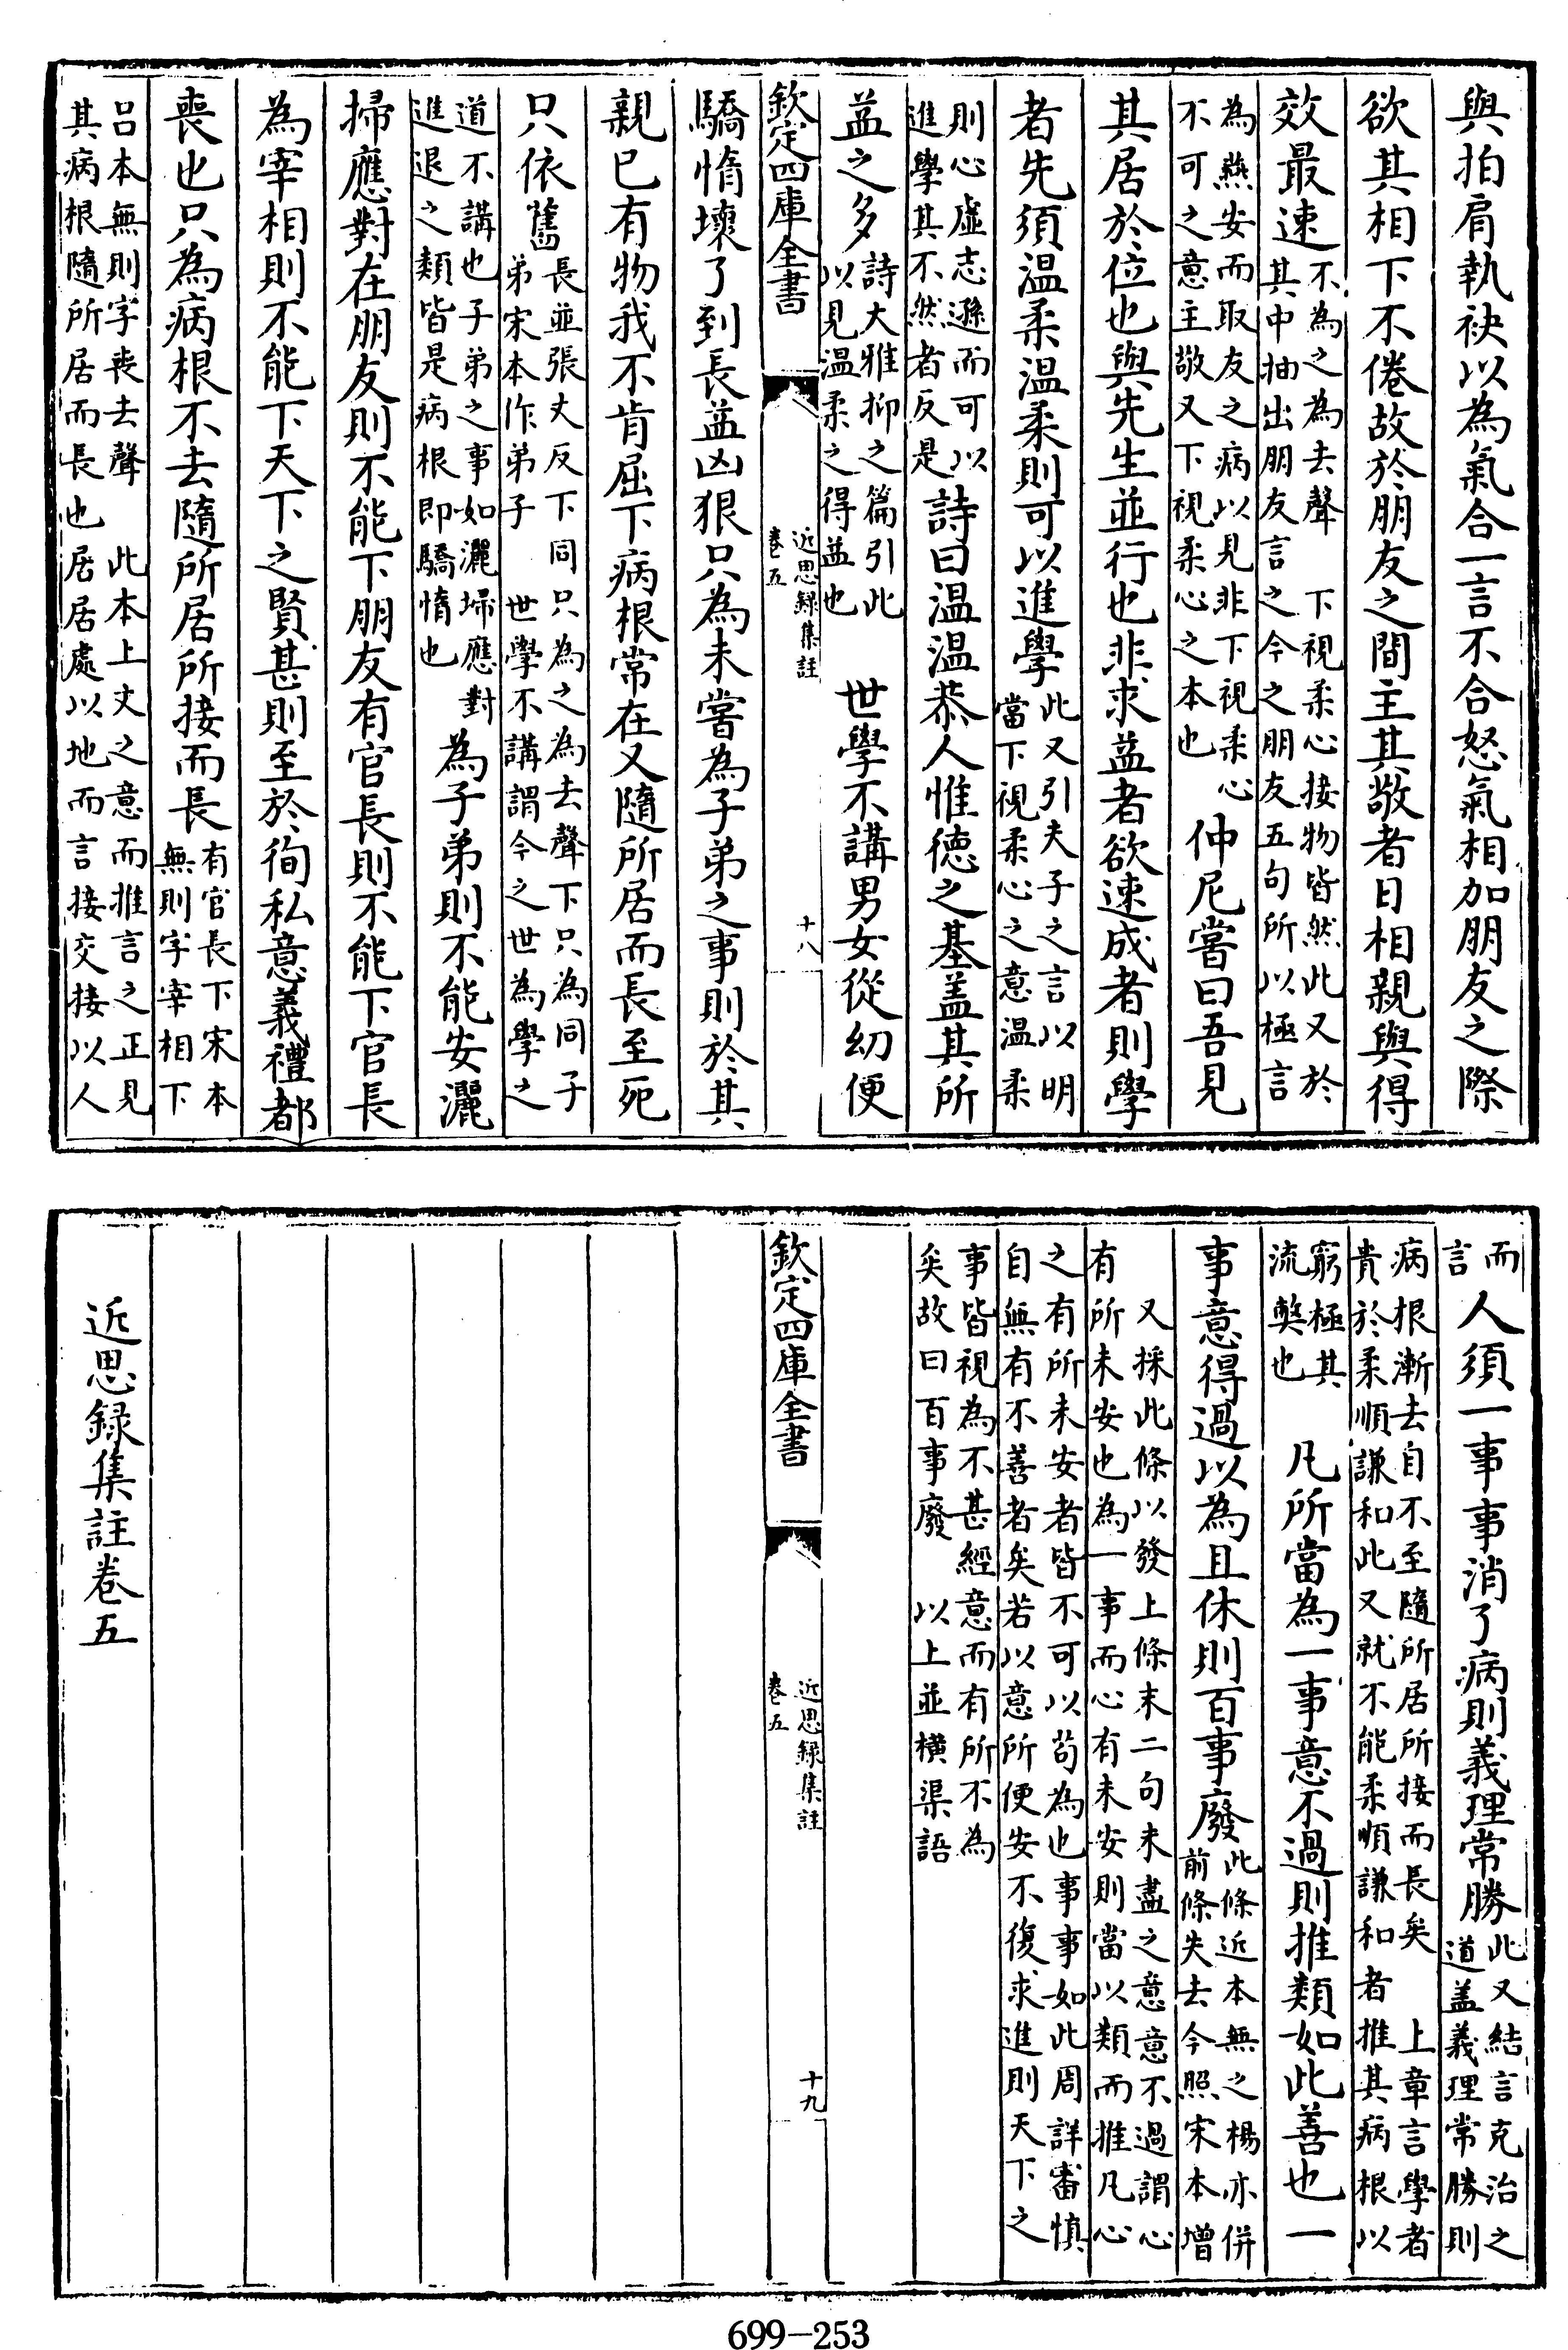 與拍肩執袂以為氣合一言不合怒氣相加朋友之際
欲其相下不倦故於朋友之間主其敬者日相親與得
效最速不為之為去聲　下視柔心接物皆然此又於
其中抽出朋友言之今之朋友五句所以極言
為燕安而取友之病以見非下視柔心
不可之意主敬又下視柔心之本也　仲尼嘗曰吾見
其居於位也與先生並行也非求益者欲速成者則學
者先須温柔温柔則可以進學此又引夫子之言以明
當下視柔心之意温柔
則心虛志遜而可以
進學其不然者反是詩曰温温恭人惟徳之基盖其所
益之多詩大雅抑之篇引此
以見温柔之得益也　世學不講男女從幼便
欽定四庫全書
近思録集註
卷五
十八
驕惰壞了到長益凶狠只為未嘗為子弟之事則於其
親已有物我不肯屈下病根常在又隨所居而長至死
只依舊長並張丈反下同只為之為去聲下只為同子
弟宋本作弟子　世學不講謂今之世為學之
道不講也子弟之事如灑埽應對
進退之類皆是病根即驕惰也為子弟則不能安灑
掃應對在朋友則不能下朋友有官長則不能下官長
為宰相則不能下天下之賢甚則至於徇私意義禮都
喪也只為病根不去隨所居所接而長有官長下宋本
無則字宰相下
吕本無則字丧去聲　此本上文之意而推言之正見
其病根隨所居而長也居居處以地而言接交接以人
而
言　人須一事事消了病則義理常勝此又結言克治之
道盖義理常勝則
病根漸去自不至隨所居所接而長矣　上章言學者
貴於柔順謙和此又就不能柔順謙和者推其病根以
窮極其
流獘也　凡所當為一事意不過則推類如此善也一
事意得過以為且休則百事廢此條近本無之楊亦併
前條失去今照宋本增
又採此條以發上條末二句未盡之意意不過謂心
有所未安也為一事而心有未安則當以類而推凡心
之有所未安者皆不可以茍為也事事如此周詳審慎
自無有不善者矣若以意所便安不復求進則天下之
事皆視為不甚經意而有所不為
矣故曰百事廢　以上並横渠語
欽定四庫全書
近思録集註
卷五
十九
近思録集註卷五
699-253